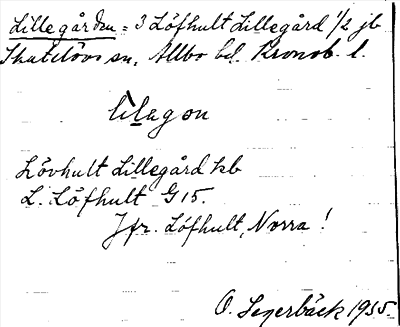 Lillegården = 3 Löfhult Lillegård 1/2 jb
Skatelövs sn, Allbo hd. Kronob. l.
lilagon
Lövhult Lillegård kb
L. Löfhult G 15.
Jfr. Löfhult, Norra!
O. Segerbäck 1935